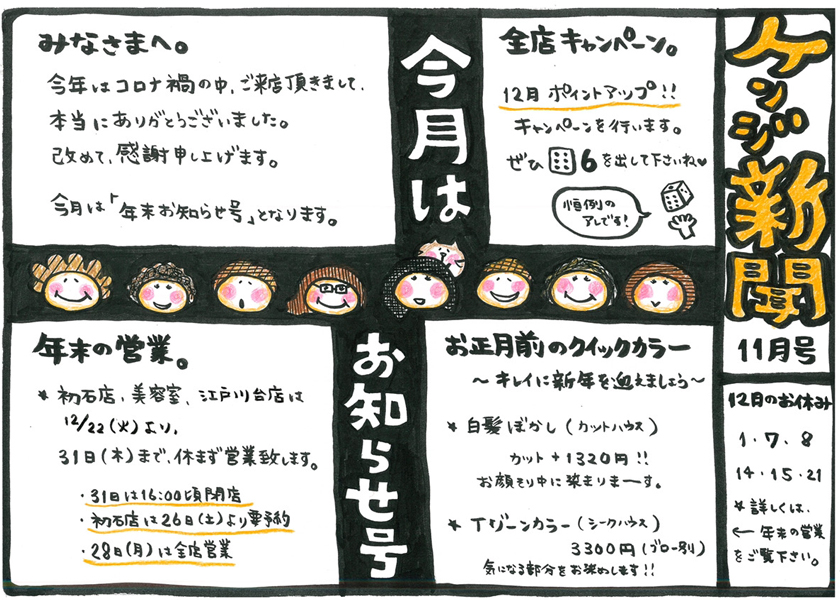 ケンジ新聞
11月号
今月は
お知らせ号
みなさまへ。
今年はコロナ禍の中、ご来店頂きまして、
本当にありがとうございました。
改めて、感謝申し上げます。
今月は「年末お知らせ号」となります。
全店キャンペーン。
12月 ポイントアップ!!
キャンペーンを行います。
ぜひ 6を出して下さいね♥
恒例の
アレです!
年末の営業。
* 初石店、美容室、江戸川台店は
12/22(火)より、
31日(木)まで、休まず営業致します。
・31日は16:00頃閉店
・初石店は26日(土)より要予約
・28日(月)は全店営業
お正月前のクイックカラー
〜キレイに新年を迎えましょう〜
* 白髪ぼかし(カットハウス)
カット+1320円!!
お顔そり中に染まりまーす。
* Tゾーンカラー(シークハウス)
3300円(ブロー別)
気になる部分をお染めします!!
12月のお休み
1・7・8
14・15・21
* 詳しくは、
← 年末の営業
をご覧下さい。